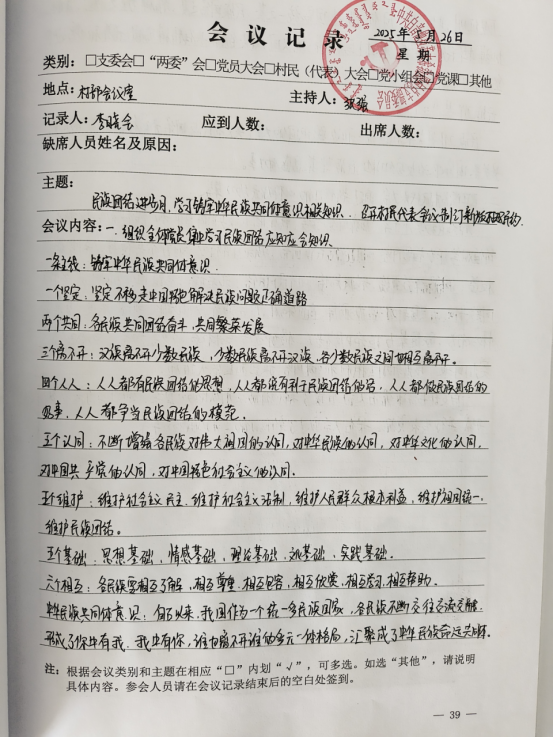 会议记录 2025年 月26日
星期
类别：□支委会□“两委”会□党员大会□村民（代表）大会□党小组会□党课□其他
地点：村部会议室 主持人：
记录人：李晓会 应到人数： 出席人数：
缺席人员姓名及原因：
主题：
民族团结进步月，学习铸牢中华民族共同体意识相关知识、召开村民代表会议
会议内容：一、组织全体党员集中学习民族团结应知应会知识
一条主线：铸牢中华民族共同体意识
一个坚定：坚定不移走中国特色解决民族问题正确道路
两个共同：各民族共同团结奋斗，共同繁荣发展
三个离不开：汉族离不开少数民族，少数民族离不开汉族，各少数民族之间也相互离不开。
四个人人：人人都有民族团结的思想，人人都说有利于民族团结的话，人人都做民族团结的
好事，人人都争当民族团结的模范。
五个认同：不断增强各民族对伟大祖国的认同，对中华民族的认同，对中华文化的认同，
对中国共产党的认同，对中国特色社会主义的认同。
五个维护：维护社会主义民主，维护社会主义法制，维护人民群众根本利益，维护祖国统一，
维护民族团结。
五个基础：思想基础、情感基础、理论基础、文化基础、实践基础。
六个相互：各民族要相互了解，相互尊重，相互包容，相互欣赏，相互学习，相互帮助。
中华民族共同体意识：自古以来，我国作为一个统一多民族国家，各民族不断交往交流交融
形成了你中有我、我中有你，谁也离不开谁的多元一体格局，汇聚成了中华民族命运共同体
注：根据会议类别和主题在相应“□”内划“√”，可多选。如选“其他”，请说明
具体内容。参会人员请在会议记录结束后的空白处签到。
— 39 —